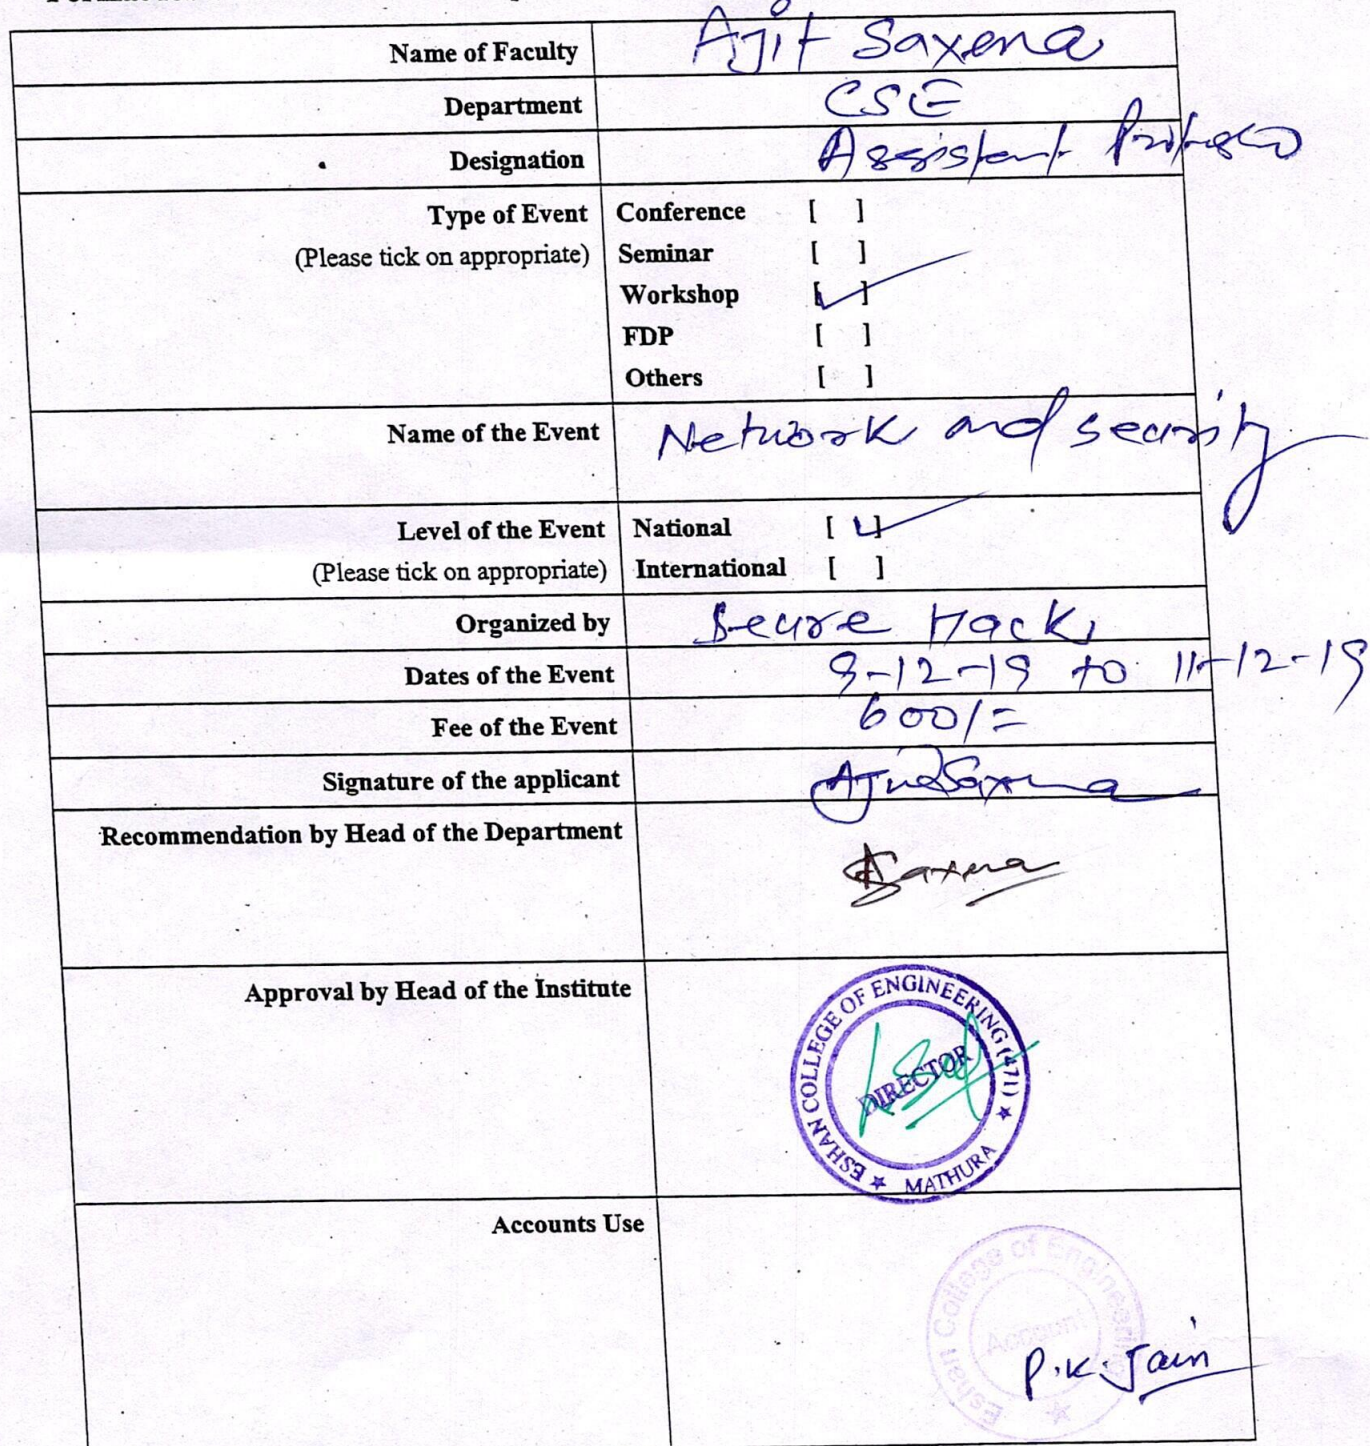 Name of Faculty Ajit Saxena
Department CSE
Designation Assistant
Type of Event Conference [ ]
(Please tick on appropriate) Seminar [ ]
Workshop [✓]
FDP [ ]
Others [ ]
Name of the Event Network and security
Level of the Event National [✓]
(Please tick on appropriate) International [ ]
Organized by Secure Hack
Dates of the Event 9-12-19 to 11-12-19
Fee of the Event 600/=
Signature of the applicant Ajit Saxena
Recommendation by Head of the Department
Saxena
Approval by Head of the Institute
ESHAN COLLEGE OF ENGINEERING (471) ★ MATHURA ★
DIRECTOR
Accounts Use
Eshan College of Engineering
Account
P.K. Jain